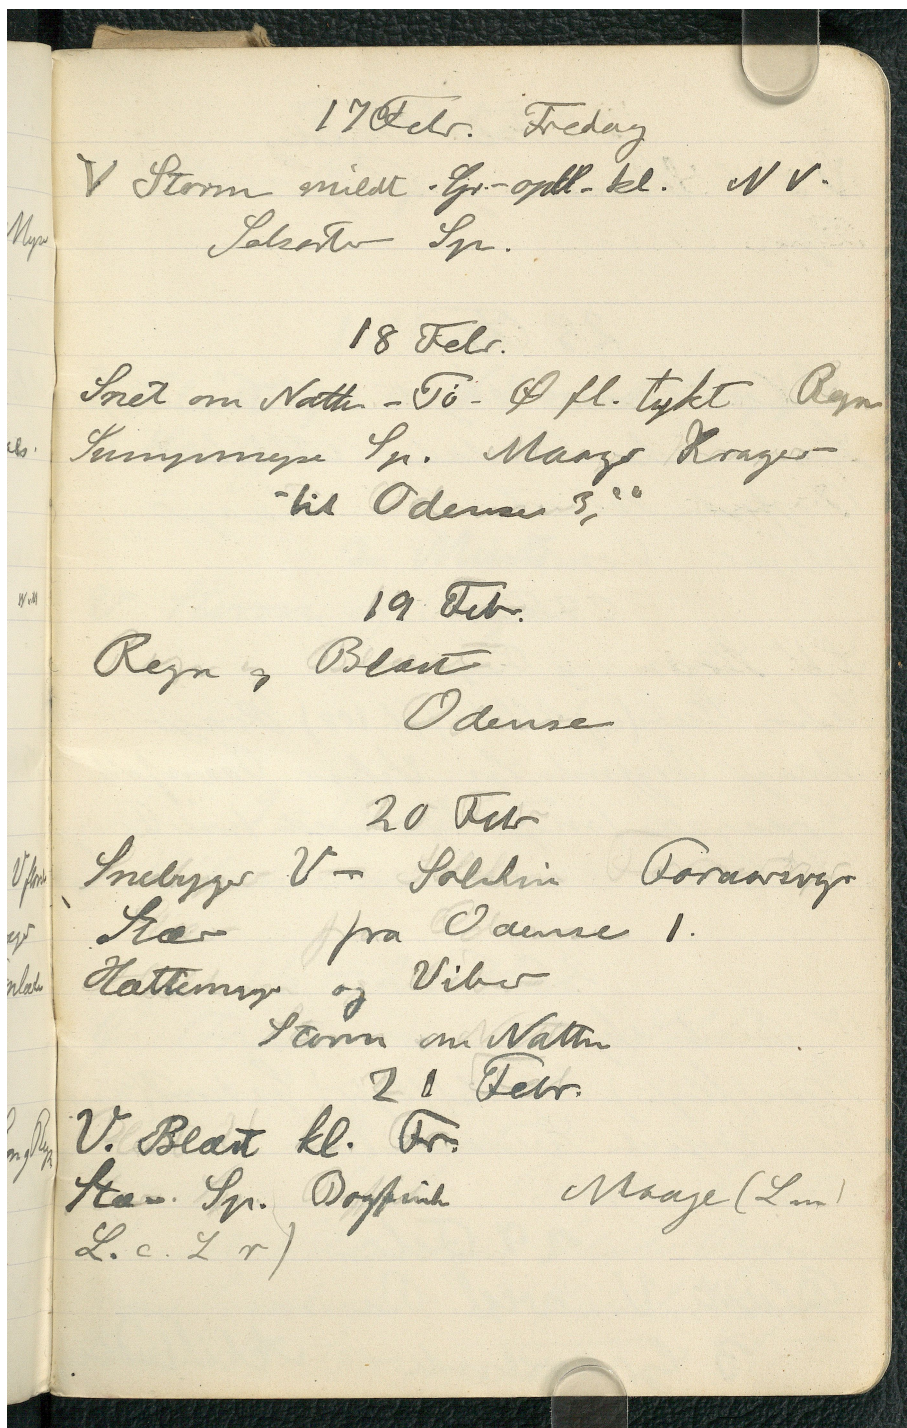 17 Febr. Fredag
V Storm mildt. Gr.- opkl- kl. N V.
Solsorte Sp.
18 Febr.
Snet om Natten - Tö - Ø fl. tykt Regn
Sumpmejse Sp. Maager Krager
til Odense 3,
19 Febr.
Regn og Blæst
Odense
20 Febr
Snebyger V - Solskin Foraarsvejr
Stær fra Odense 1.
Hættemaage og Viber
Storm om Natten
21 Febr.
V. Blæst kl. Fr.
Stær. Sp. Bogfinke Maage (L m
L. c. L r)